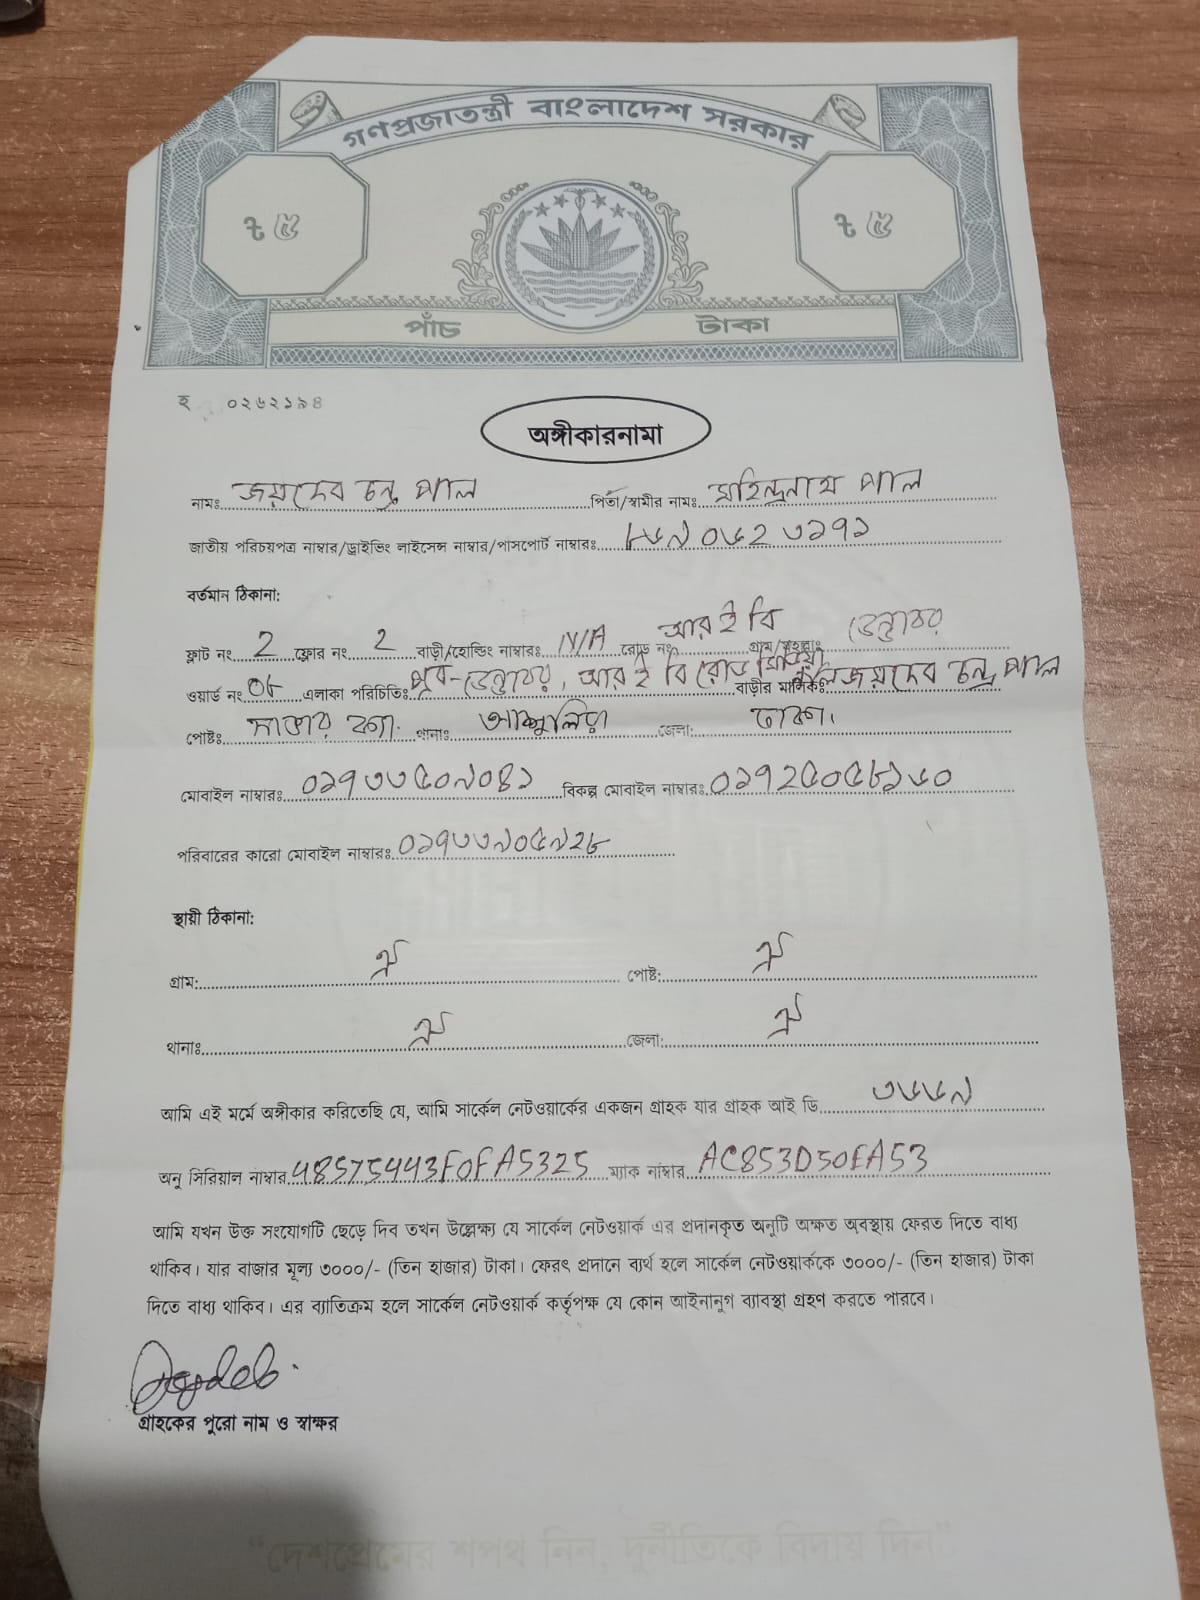 গণপ্রজাতন্ত্রী বাংলাদেশ সরকার
৳ ৫ ৳ ৫
পাঁচ টাকা
হ ০২৬২১৯৪
অঙ্গীকারনামা
নামঃ জয়দেব চন্দ্র পাল পিতা/স্বামীর নামঃ মহিন্দ্রনাথ পাল
জাতীয় পরিচয়পত্র নাম্বার/ড্রাইভিং লাইসেন্স নাম্বার/পাসপোর্ট নাম্বারঃ ৮৬৯০৬২৩১৭১
বর্তমান ঠিকানা:
ফ্লাট নং 2 ফ্লোর নং 2 বাড়ী/হোল্ডিং নাম্বারঃ N/A রোড নং আর ই বি গ্রাম/মহল্লাঃ ডেন্ডাবর
ওয়ার্ড নং ০৮ এলাকা পরিচিতিঃ পূর্ব-ডেন্ডাবর, আর ই বি রোড বাড়ীর মালিকঃ জয়দেব চন্দ্র পাল
পোষ্টঃ সাভার ক্যা. থানাঃ আশুলিয়া জেলা: ঢাকা।
মোবাইল নাম্বারঃ ০১৭৩৩৫০৯০৪১ বিকল্প মোবাইল নাম্বারঃ ০১৭২৫০৫৮১৬০
পরিবারের কারো মোবাইল নাম্বারঃ ০১৭৩৩৯০৫৯২৮
স্থায়ী ঠিকানা:
গ্রাম: ঐ পোষ্ট: ঐ
থানাঃ ঐ জেলা: ঐ
আমি এই মর্মে অঙ্গীকার করিতেছি যে, আমি সার্কেল নেটওয়ার্কের একজন গ্রাহক যার গ্রাহক আই ডি ৩৬৬৯
অনু সিরিয়াল নাম্বার 48575443F0FA5325 ম্যাক নাম্বার AC853D50EA53
আমি যখন উক্ত সংযোগটি ছেড়ে দিব তখন উল্লেক্ষ্য যে সার্কেল নেটওয়ার্ক এর প্রদানকৃত অনুটি অক্ষত অবস্থায় ফেরত দিতে বাধ্য
থাকিব। যার বাজার মূল্য ৩০০০/- (তিন হাজার) টাকা। ফেরৎ প্রদানে ব্যর্থ হলে সার্কেল নেটওয়ার্ককে ৩০০০/- (তিন হাজার) টাকা
দিতে বাধ্য থাকিব। এর ব্যাতিক্রম হলে সার্কেল নেটওয়ার্ক কর্তৃপক্ষ যে কোন আইনানুগ ব্যাবস্থা গ্রহণ করতে পারবে।
Joydeb.
গ্রাহকের পুরো নাম ও স্বাক্ষর
"দেশপ্রেমের শপথ নিন, দুর্নীতিকে বিদায় দিন"